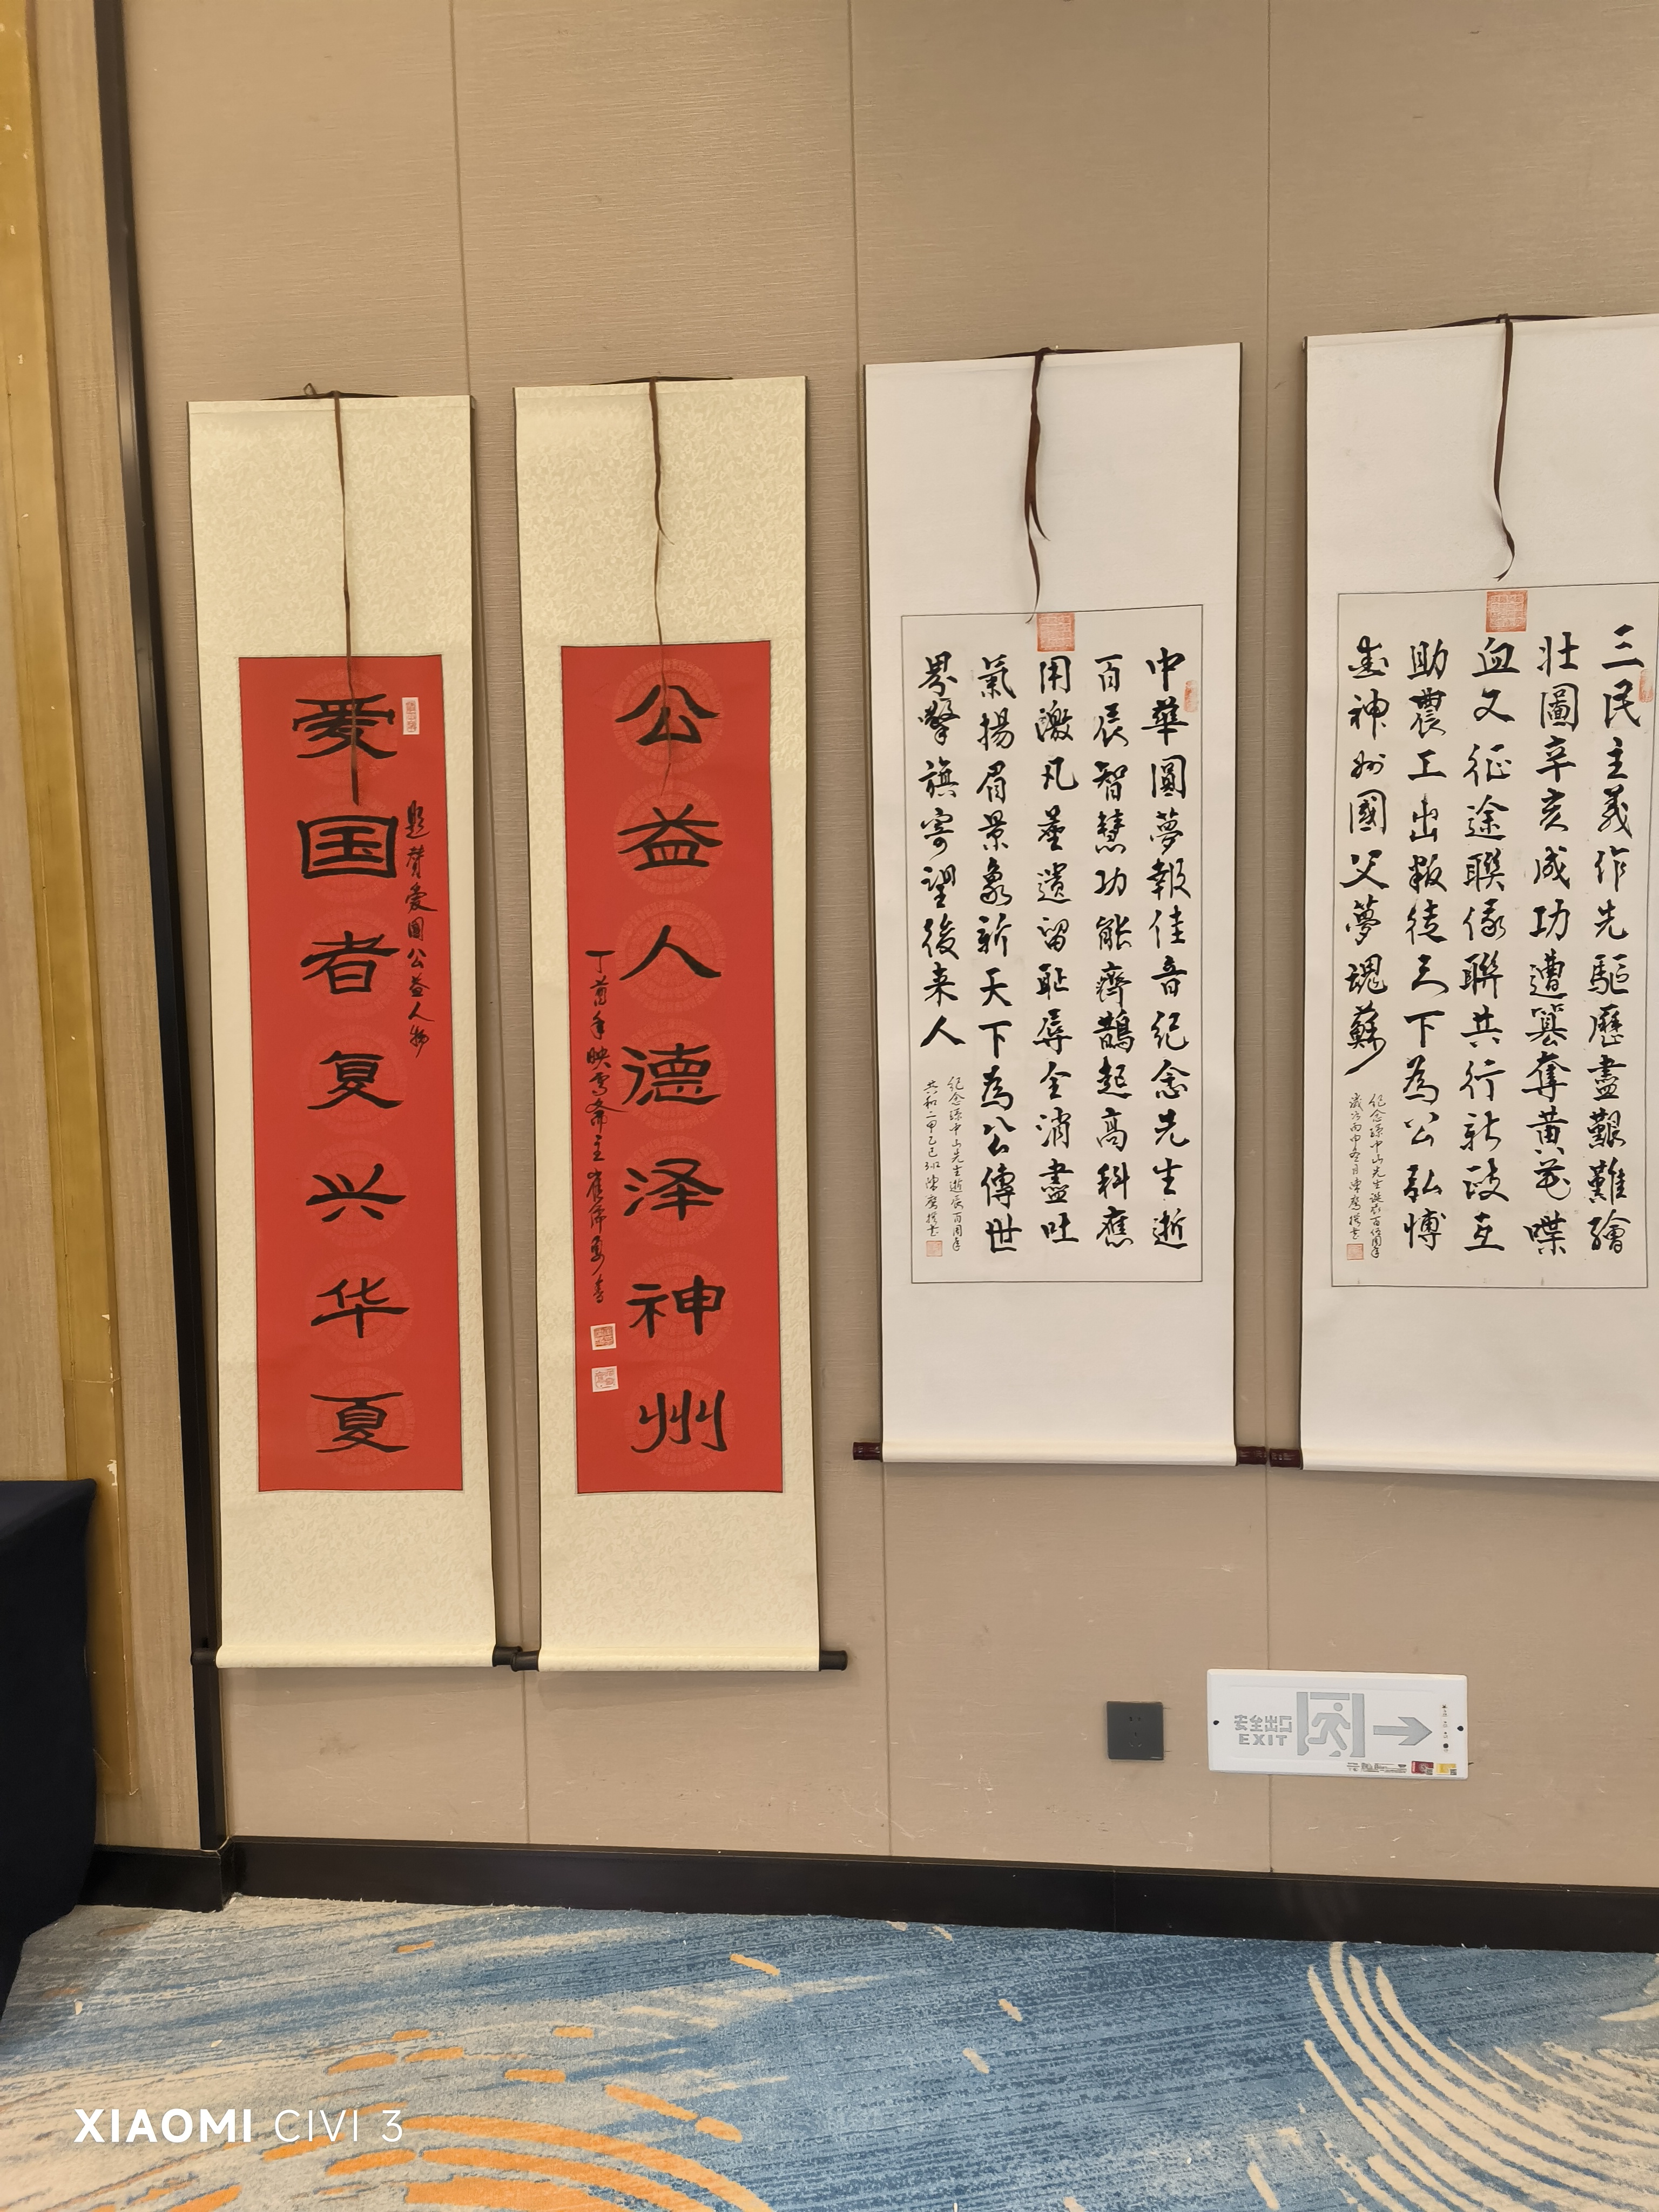 爱国者复兴华夏
题赞爱国公益人物
公益人德泽神州
丁酉年映雪斋主崔
中華圓夢報佳音紀念先生逝
百辰智慧功能齊鵲起高科應
用激凡塵遺留恥辱全消盡吐
氣揚眉景象新天下為公傳世
界擎旗寄望後来人
紀念孫中山先生逝辰百周年
三民主義作先驅歷盡艱難繪
壯圖辛亥成功遭篡奪黃花喋
血又征途聯俄聯共行新政互
助農工出叛徒天下為公弘博
愛神州國父夢魂蘇
紀念孫中山先生誕辰百伍周年
安全出口
EXIT
XIAOMI CIVI 3